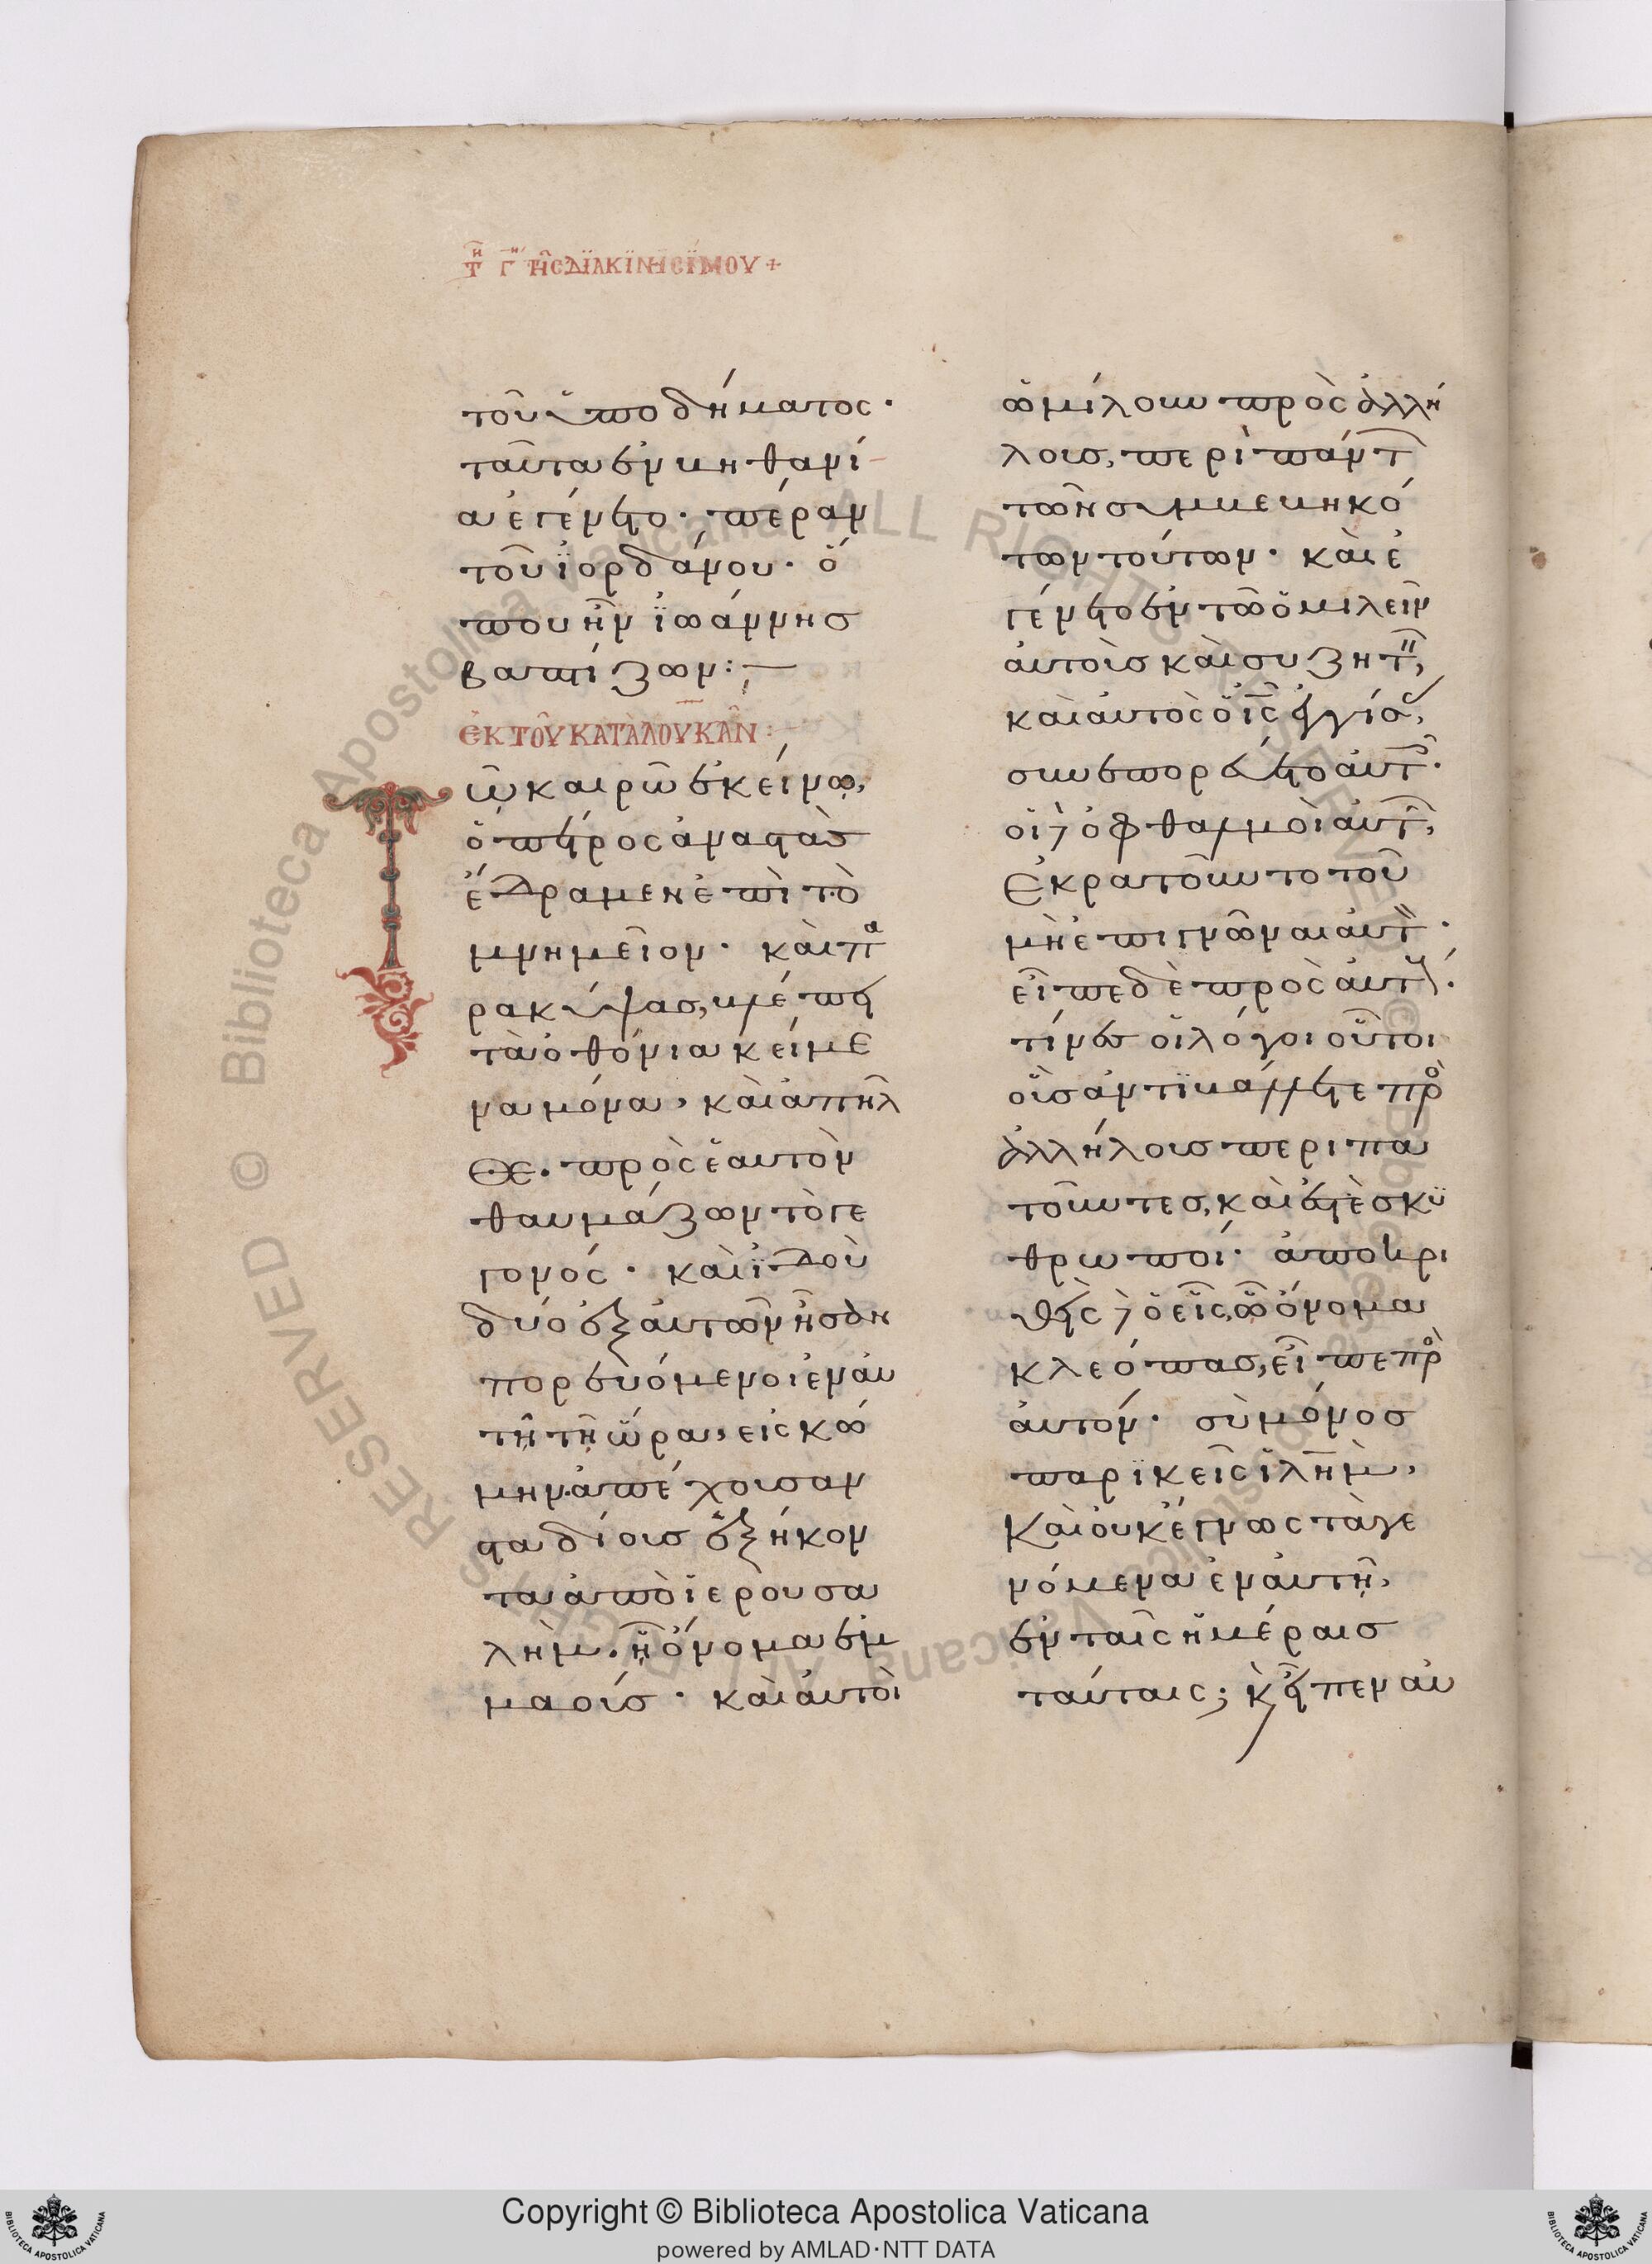 τῇ γῃ τῆς διακϊνησΐμου +
τοῦ ὑποδήματος·
ταῦτα ἐν βηθανί
α ἐγένετο· πέραν
τοῦ ϊορδάνου· ὅ
που ἦν ϊωάννησ
βαπτίζων:—
ἐκ τοῦ κατὰ λουκᾶν:
Τῶ καιρῶ ἐκείνω,
ὁ πέτρος ἀναστὰσ
ἔδραμεν ἐπὶ τὸ
μνημεῖον· καὶ πα
ρακύψασ, βλέπει
τὰ ὀθόνια κείμε
να μόνα, καὶ ἀπῆλ
θε. πρὸς ἑαυτὸν
θαυμάζων τὸ γε
γονός· καὶ ϊδοὺ
δύο ἐξ αὐτῶν ἦσαν
πορευόμενοι ἐν αὐ
τῆ τῆ ὥρα, εἰς κώ
μην ἀπέχουσαν
σταδίουσ ἑξήκον
τα ἀπὸ ἱερουσα
λὴμ. ἧ ὄνομα ἐμ
μαούσ· καὶ αὐτοὶ
ὡμίλουν πρὸς ἀλλή
λουσ, περὶ πάντ
τῶν συμβεβηκό
των τούτων· καὶ ἐ
γένετο ἐν τῶ ὁμιλεῖν
αὐτοὺσ καὶ συζητ,
καὶ αὐτὸς ὁ ις ἐγγίσ,
συνεπορεύετο αὐτ·
οἱ δ ὀφθαλμοὶ αὐτ,
ἐκρατοῦντο τοῦ
μὴ ἐπιγνῶναι αὐτ·
εἶπε δὲ πρὸς αὐτ·
τίνεσ οἱ λόγοι οὗτοι
οὓσ ἀντϊβάλλετε πρὸ
ἀλλήλουσ περιπα
τοῦντεσ, καὶ ἐστὲ σκϋ
θρωποί· ἀποκρι
θεὶς δ ὁ εἷς, ὧ ὄνομα
κλεόπασ, εἶπε πρὸ
αὐτόν· σὺ μόνοσ
παρϊκεῖς ϊλῆμ,
καὶ οὐκ ἔγνως τὰ γε
νόμενα ἐν αὐτῆ,
ἐν ταῖς ἡμέραισ
ταύταις; κ εἶπεν αὐ
© Biblioteca Apostolica Vaticana ALL RIGHTS RESERVED
Copyright © Biblioteca Apostolica Vaticana
powered by AMLAD·NTT DATA